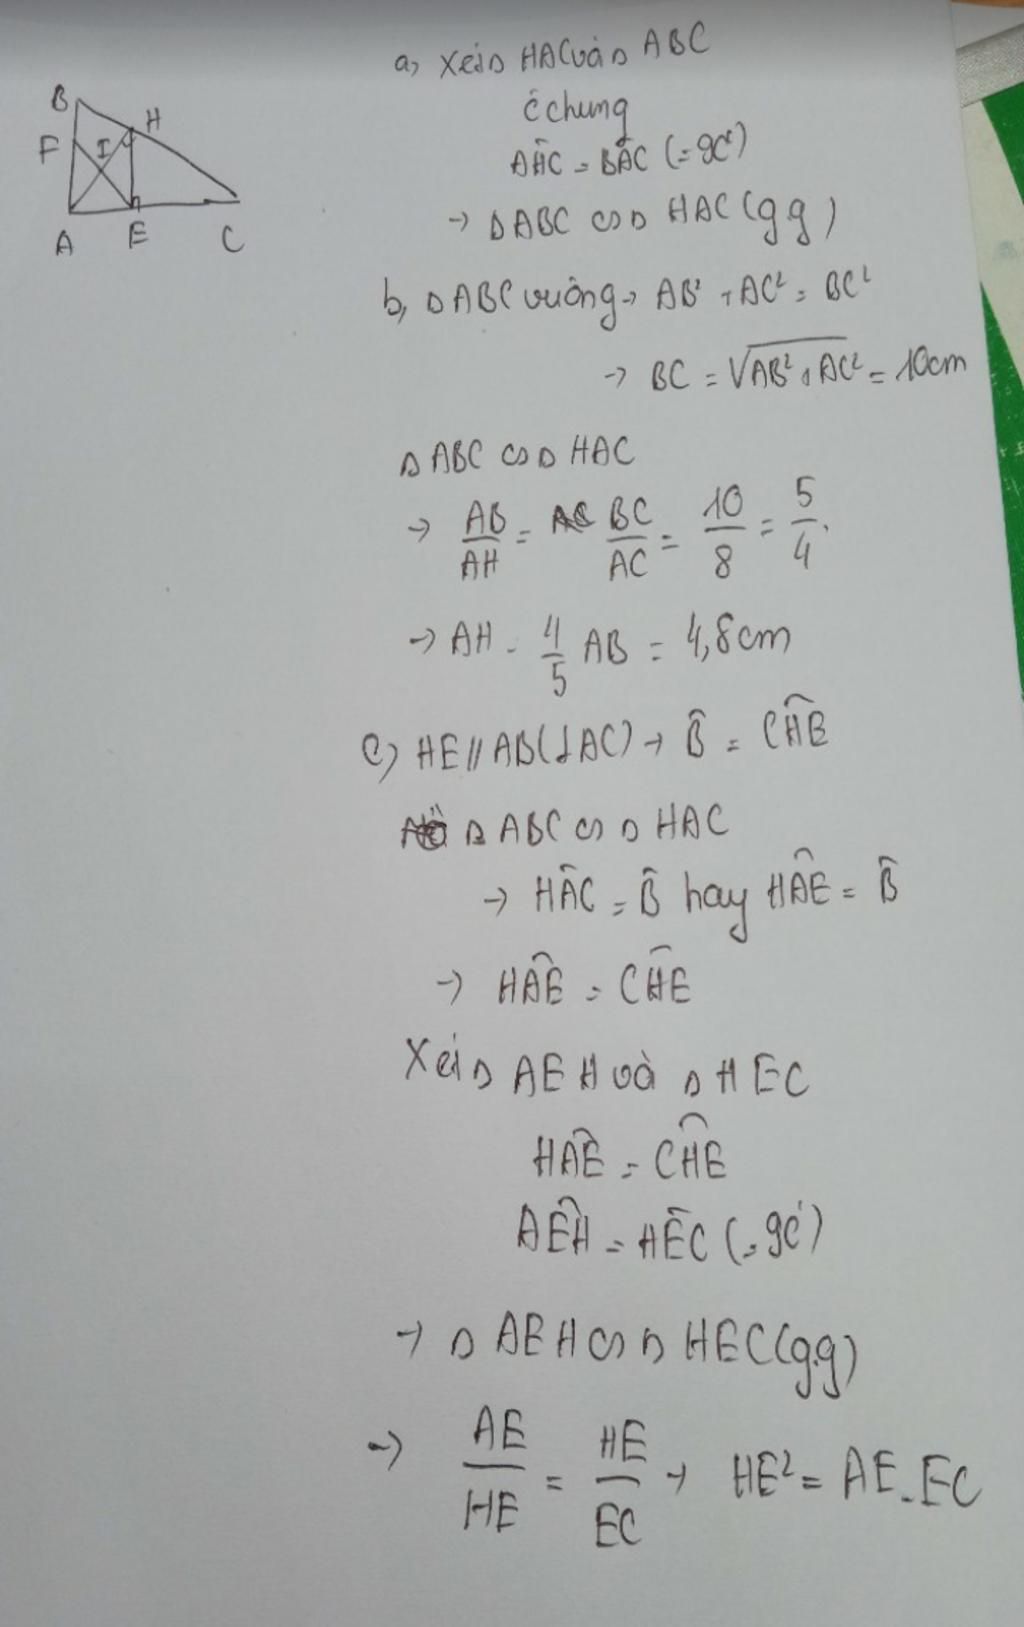 B
H
F
I
A
E
C
a, Xét Δ HAC và Δ ABC
Ĉ chung
AĤC = BÂC (=90°)
→ Δ ABC ∽ Δ HAC (gg)
b, Δ ABC vuông → AB² + AC² = BC²
→ BC = √AB² + AC² = 10cm
Δ ABC ∽ Δ HAC
→ AB/AH = BC/AC = 10/8 = 5/4.
→ AH = 4/5 AB = 4,8cm
c) HE // AB (⊥AC) → B̂ = CĤE
Δ ABC ∽ Δ HAC
→ HÂC = B̂ hay HÂE = B̂
→ HÂE = CĤE
Xét Δ AEH và Δ HEC
HÂE = CĤE
AÊH = HÊC (=90°)
→ Δ AEH ∽ Δ HEC (g.g)
→ AE/HE = HE/EC → HE² = AE.EC